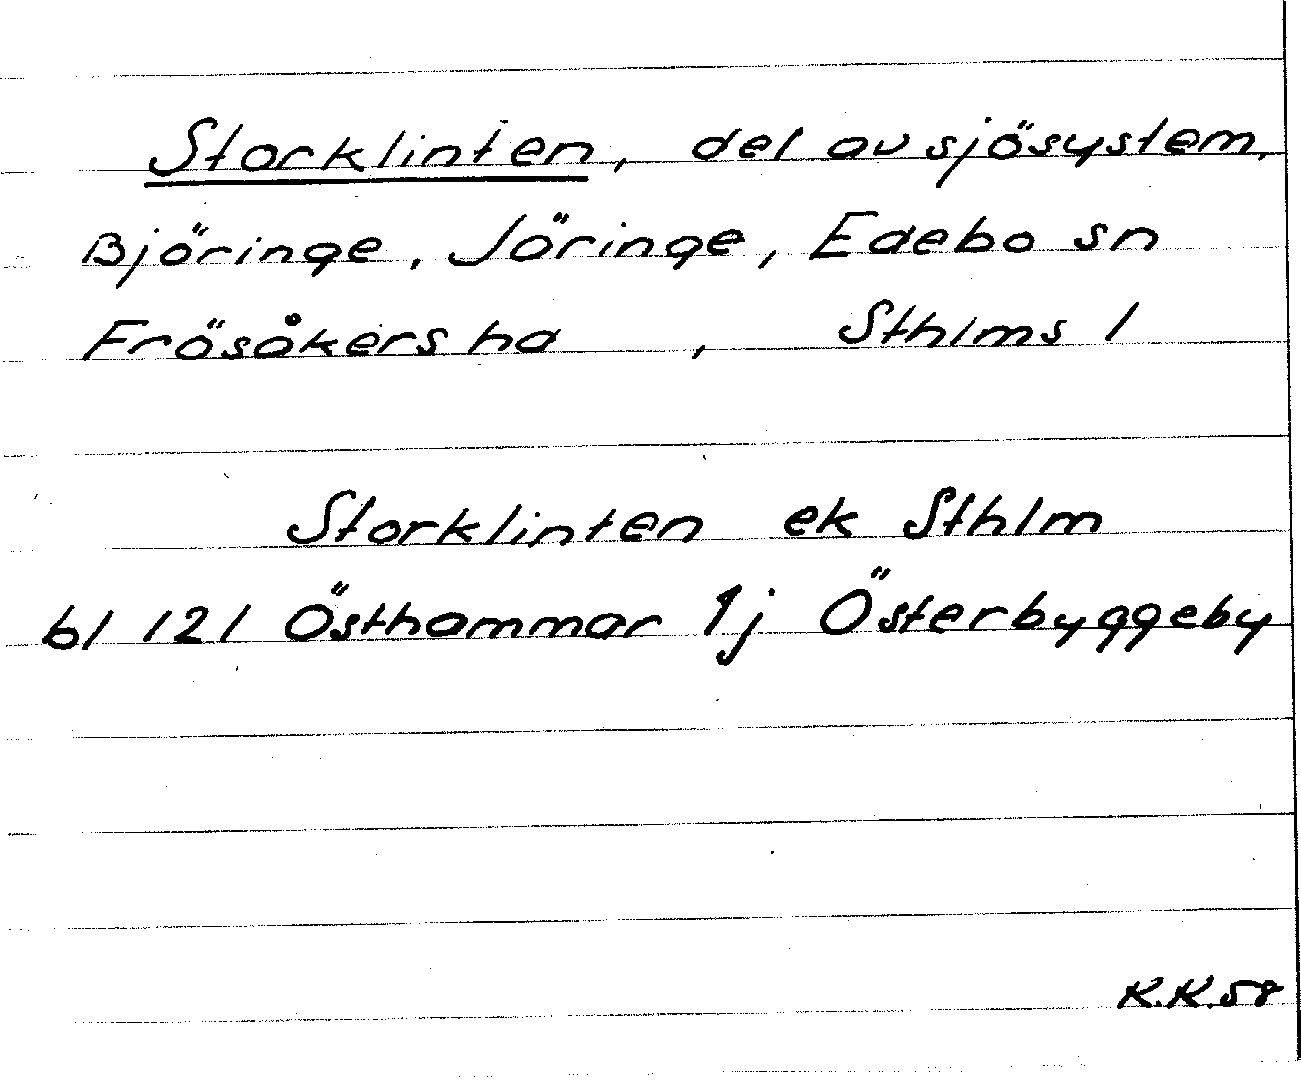 Storklinten, del av sjösystem,
Björinge, Jöringe, Edebo sn
Frösåkers hd, Sthlms l
Storklinten ek Sthlm
bl 121 Östhammar 1j Österbyggeby
K.K.58